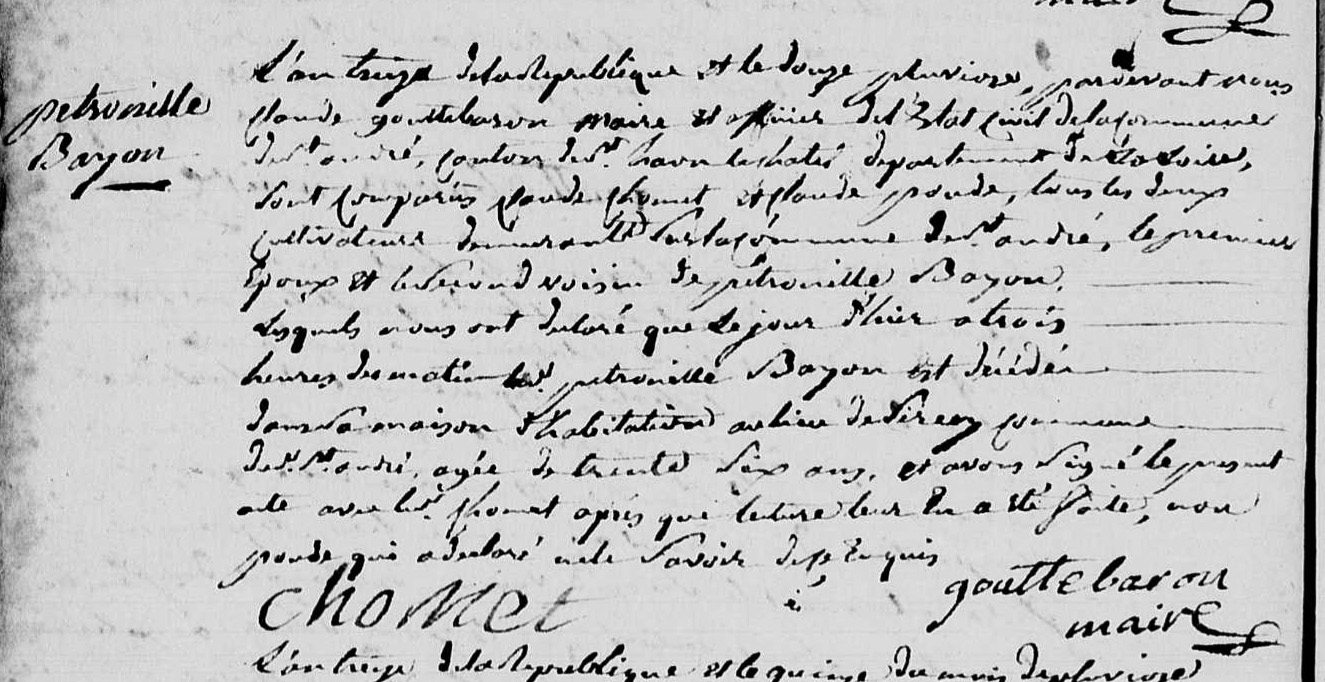 maire
L'an treize de la Republique et le douze pluviose, pardevant nous
petronille
Claude gouttebaron maire et officier del'Etat Civil de la Commune
Bayon
de St. andré, Canton de St. haon le chatel departement de la Loire,
sont Comparus Claude Chomet et Claude ponde, tous les deux
Cultivateurs demeurants sur la Commune de St. andré, le premier
Epoux et le second voisin de pétronille Bayon,
Lesquels nous ont declaré que le jour d'hier a trois
heures du matin lad. petronille Bayon est décédée
dans sa maison d'habitation au lieu de commune
dud. St. andré, agée de trente six ans, et avons signé le present
acte avec led. Chomet après que lecture leur En a été faite, non
ponde qui a declaré ne le savoir de ce Enquis
Chomet
gouttebaron
maire
L'an treize de la Republique et le quinze du mois de pluviose